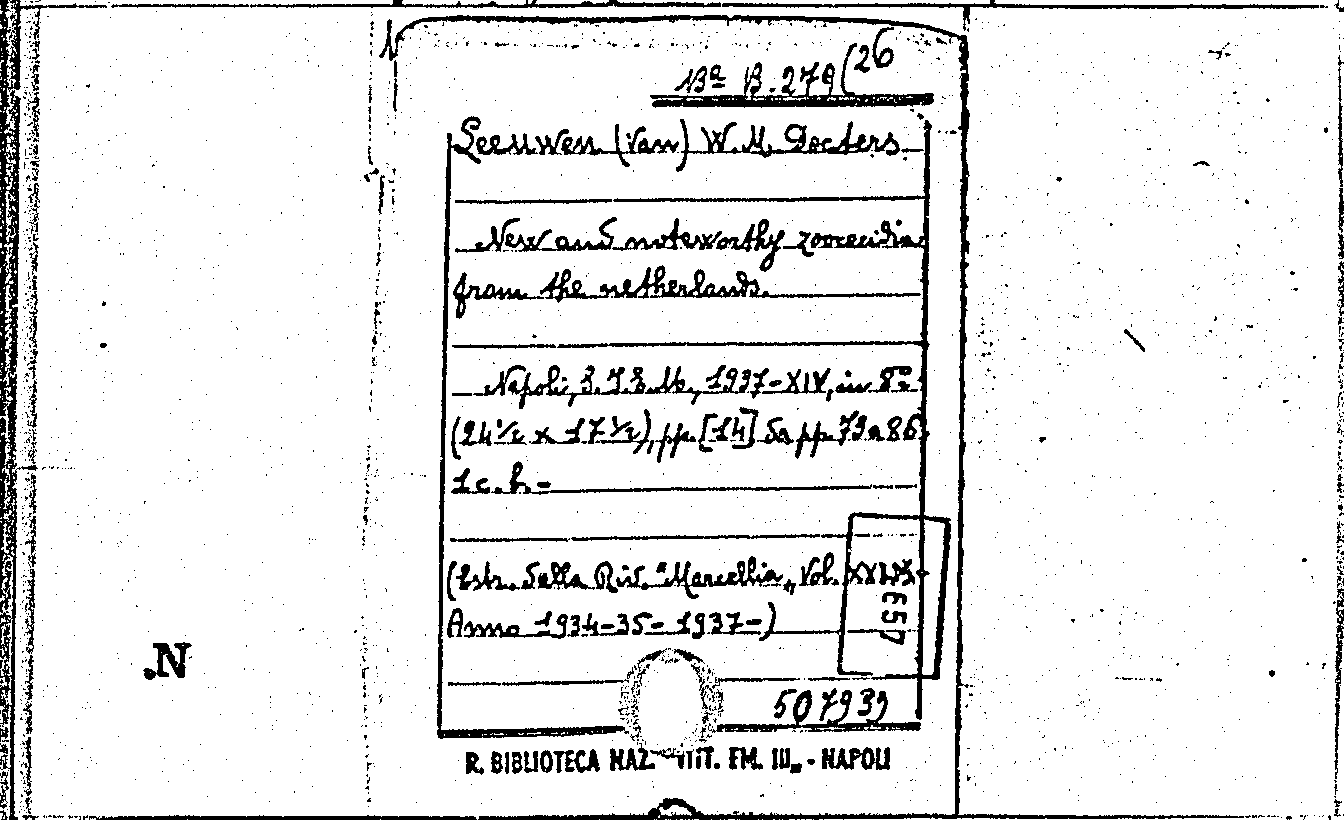 Bª B. 279 (26
Leeuwen (Van) W. M. Docters
New and noteworthy zoocecidia
from the netherlands.
Napoli, S. I. E. M., 1937-XIV, in 8º
(24 1/2 x 17 1/2), pp. [14] da pp. 79 a 86
1 c. b. -
(Estr. dalla Riv. "Marcellia„ Vol. XXIX-
Anno 1934-35- 1937-)
657
.N
507939
R. BIBLIOTECA NAZ. VITT. EM. III„ - NAPOLI